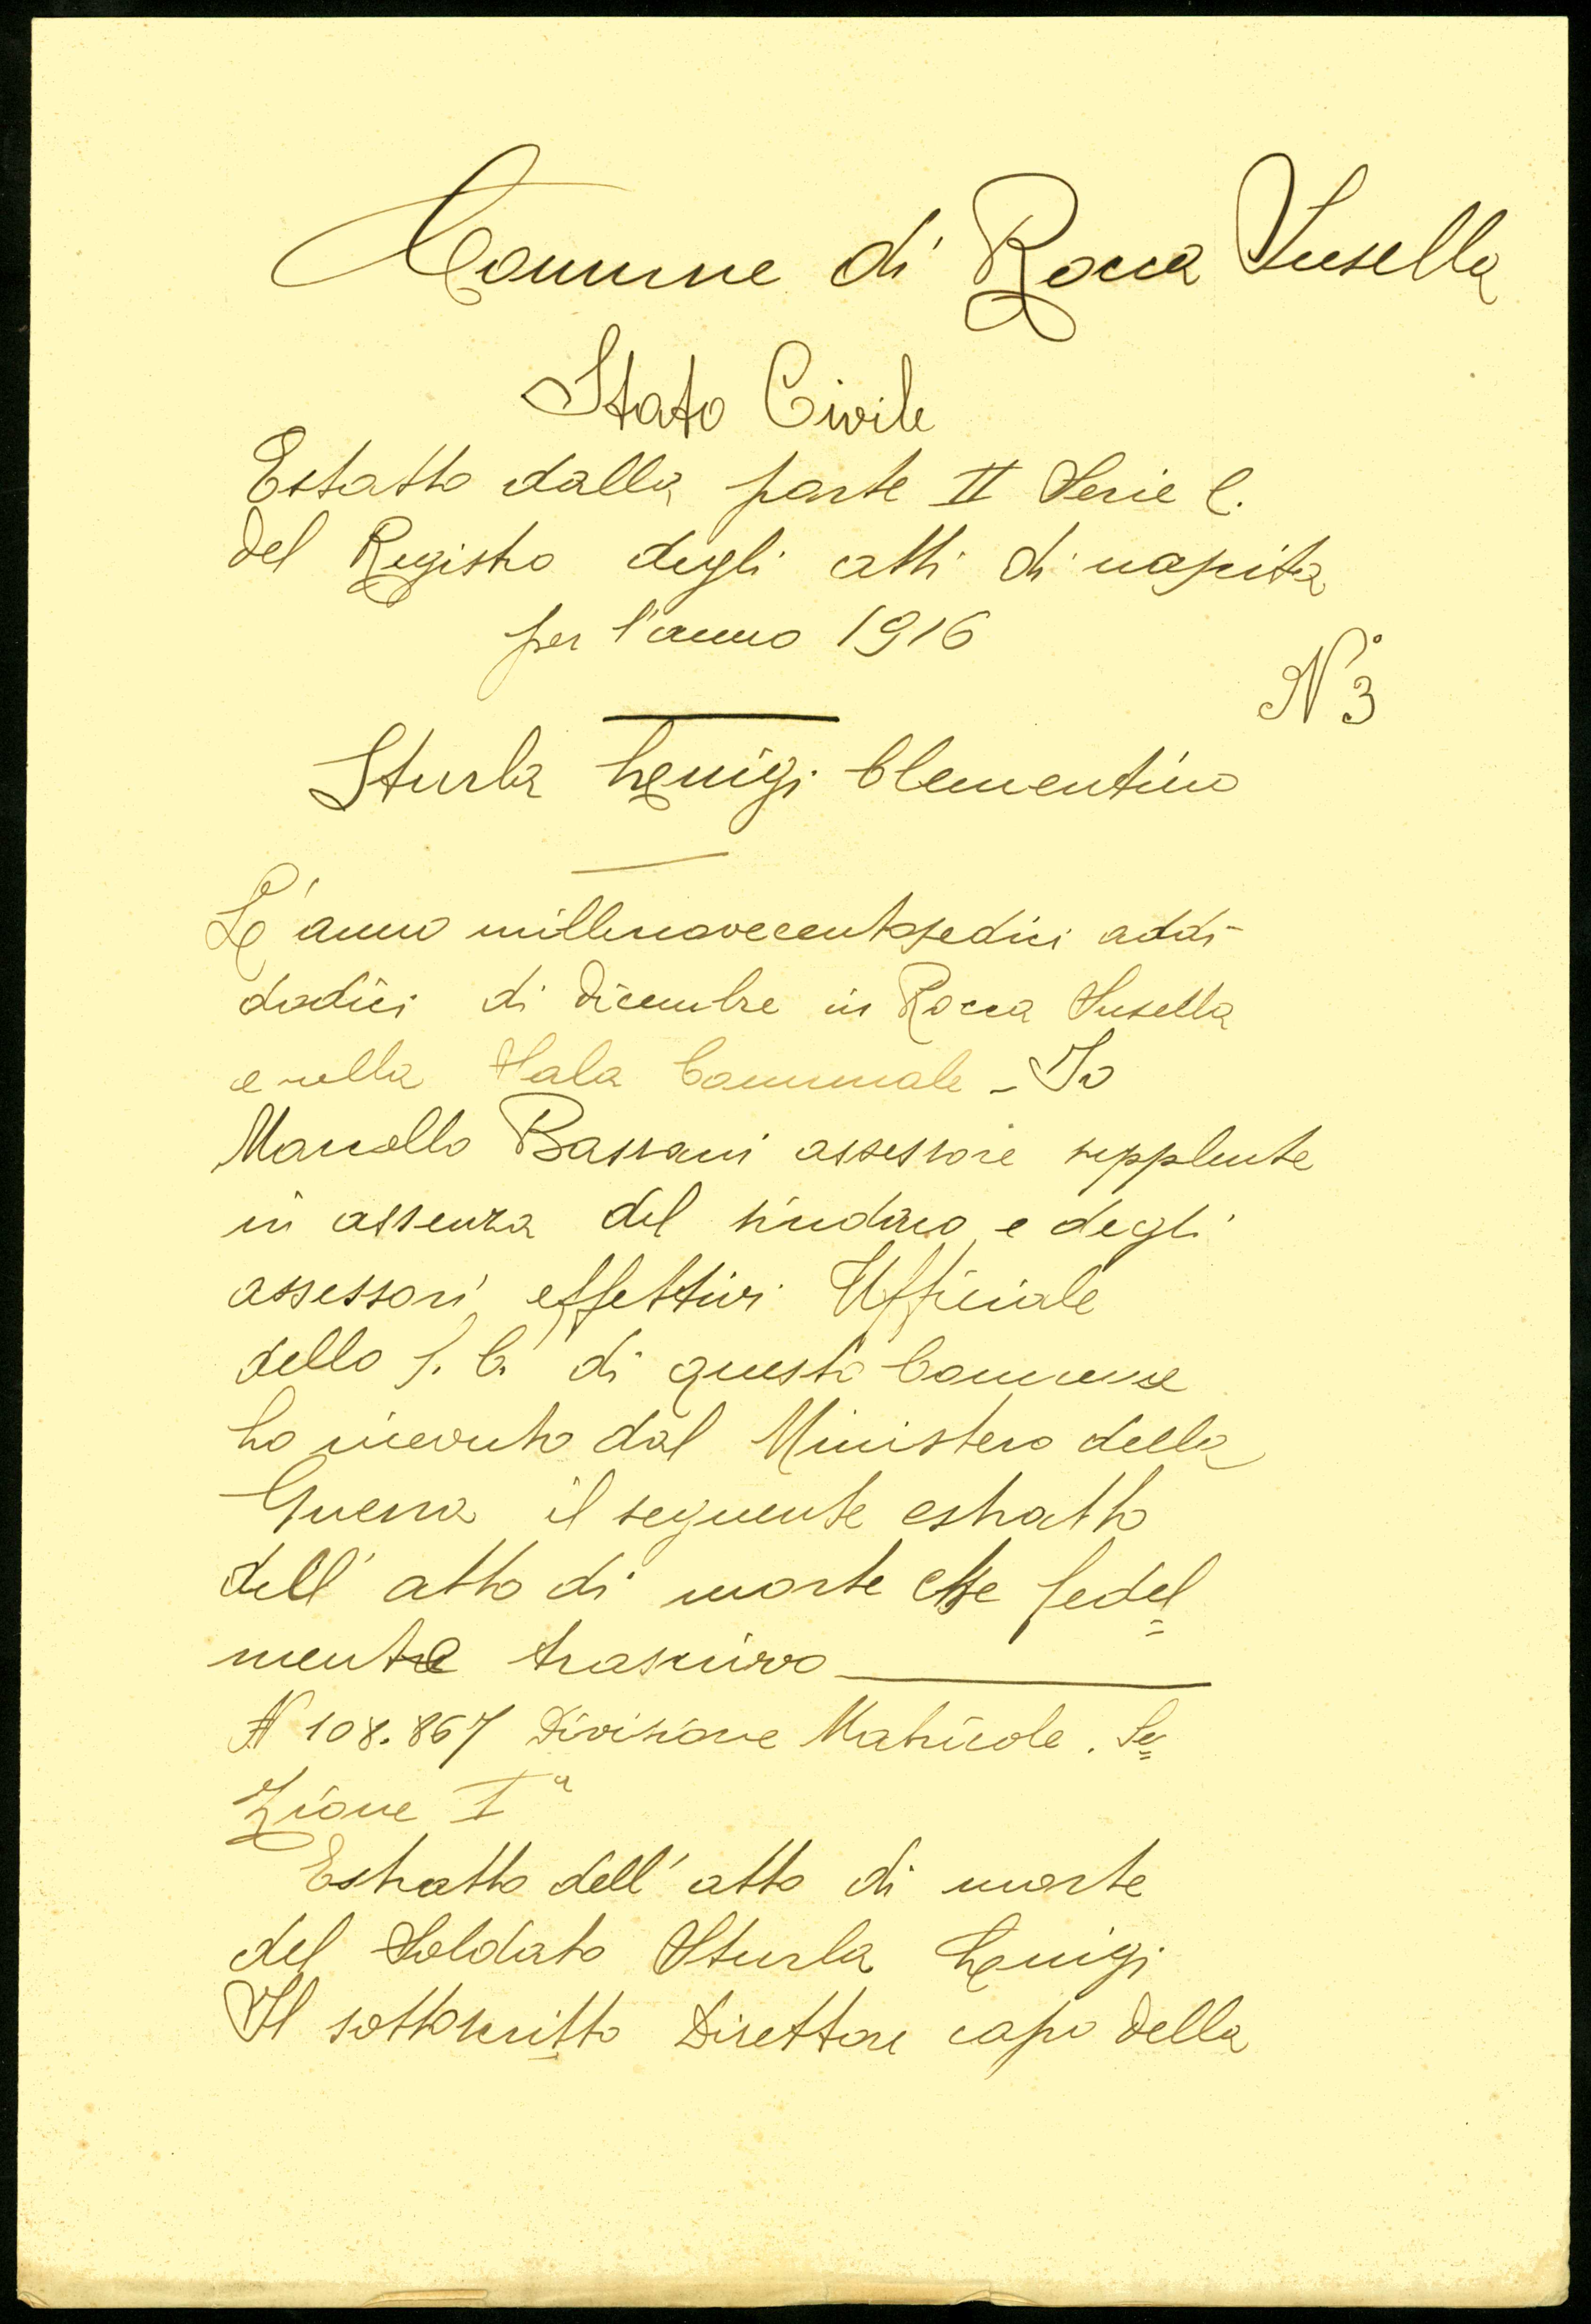 Comune di Rocca Susella
Stato Civile
Estatto dalla parte II Serie C.
del Registro degli atti di nascita
per l'anno 1916
N° 3
Sturla Luigi Clementino
L'anno millenovecentosedici addì
dodici di Dicembre in Rocca Susella
e nella Sala Comunale - Io
Marcello Bassani assessore supplente
in assenza del sindaco e degli
assessori effettivi Ufficiale
dello S. C. di questo Comune
ho ricevuto dal Ministero della
Guerra il seguente estratto
dell' atto di morte che fedel=
mente trascrivo
N 108.867 Divisione Matricole. Se=
zione Iª
Estratto dell' atto di morte
del Soldato Sturla Luigi
Il sottoscritto Direttore capo della